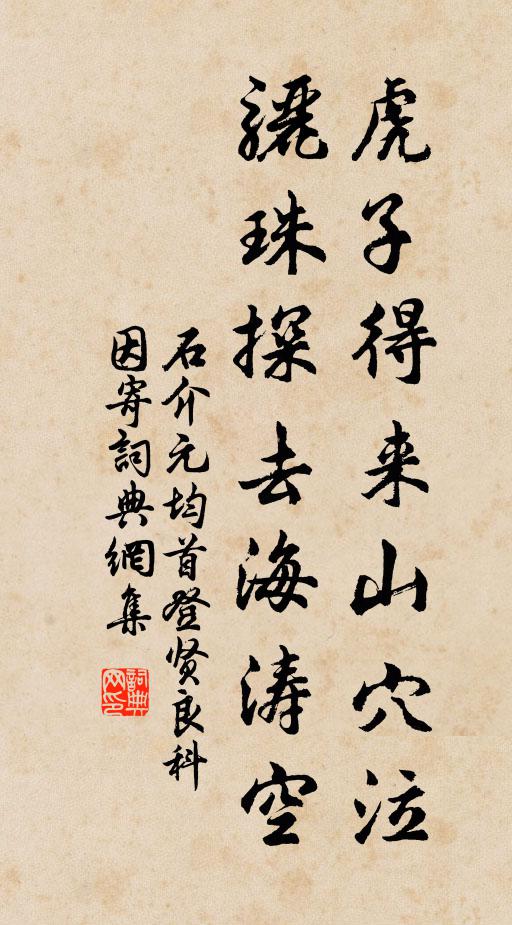 虎子得来山穴泣
骊珠探去海涛空
石介元均首登贤良科
因寄詞典網集
詞典网印